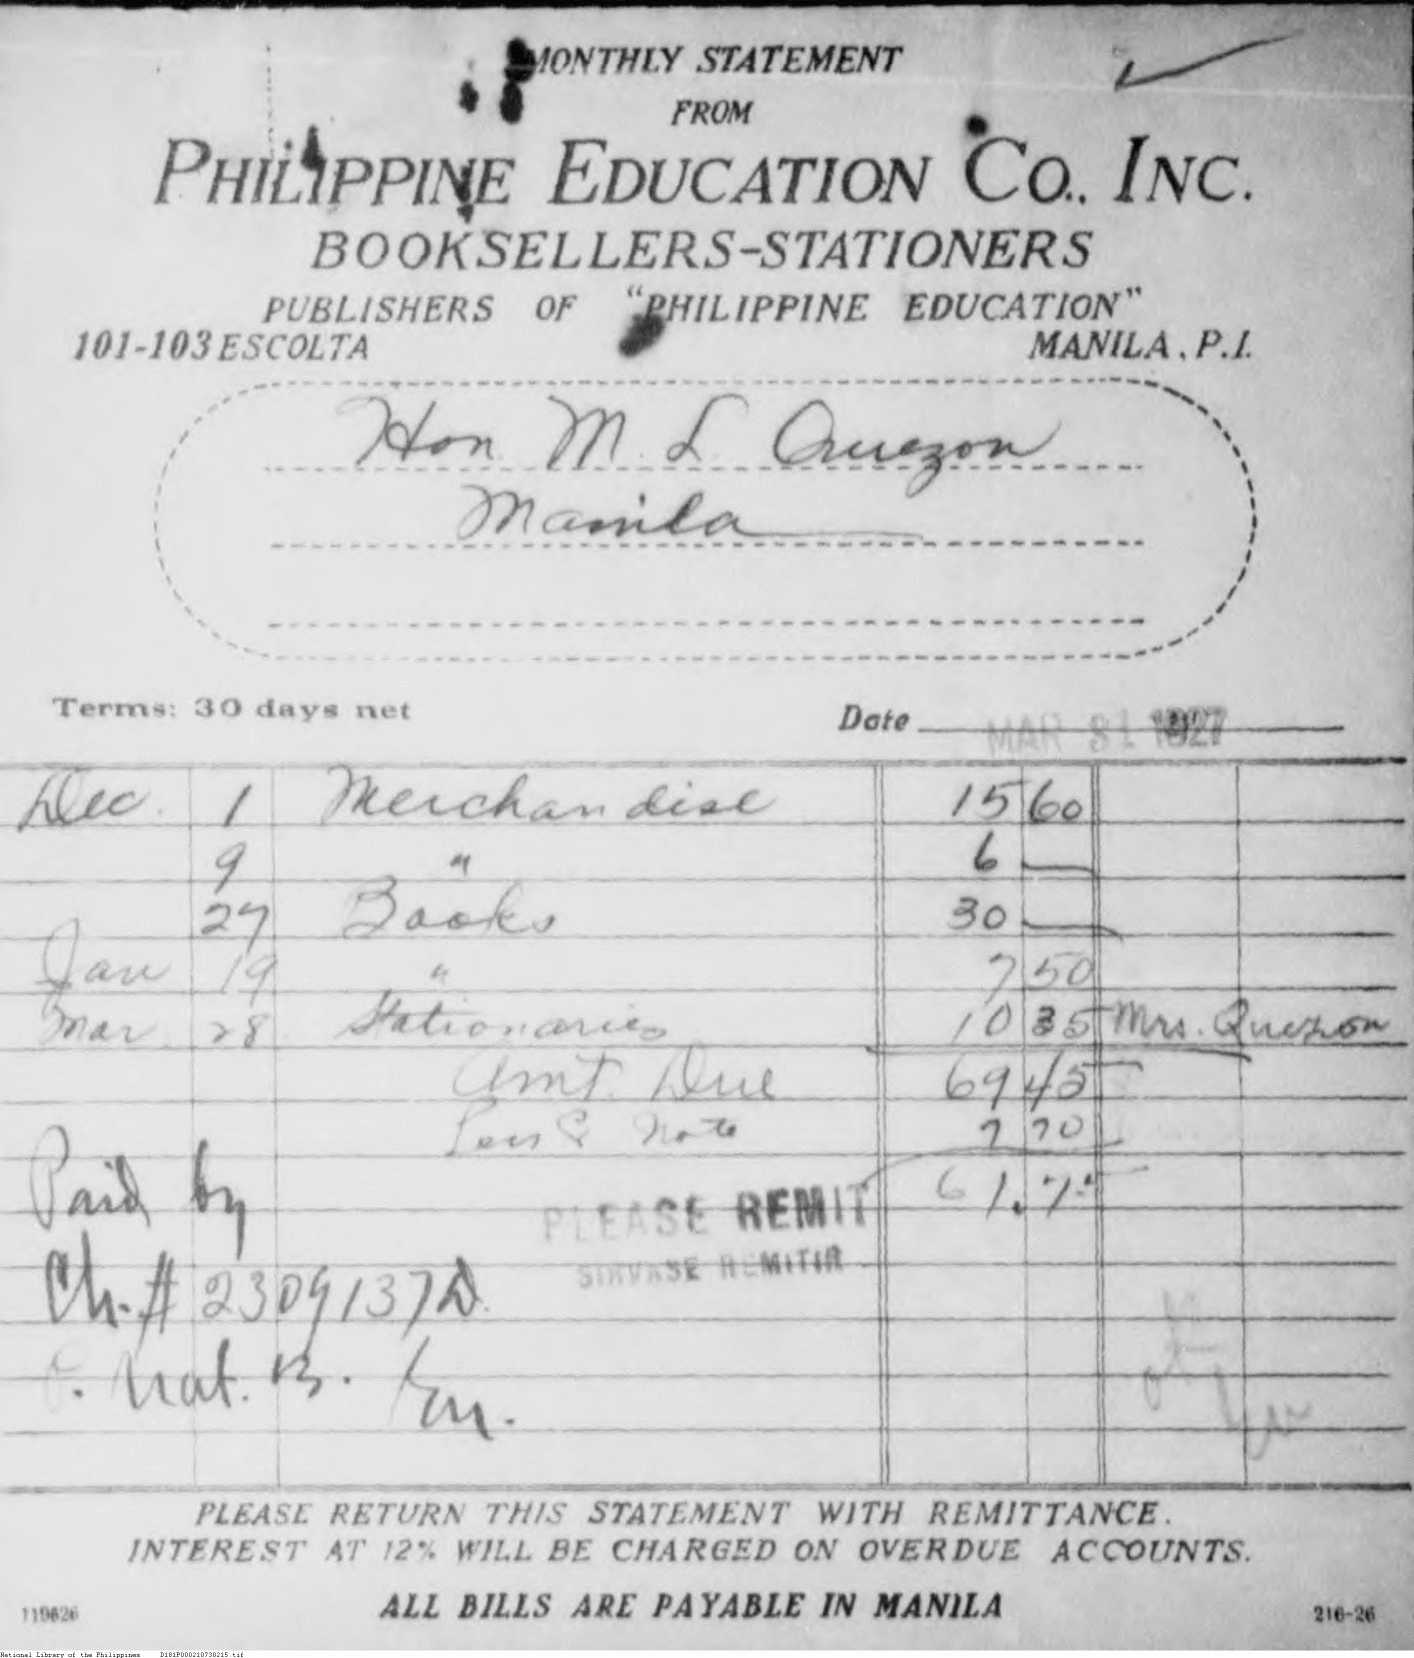 MONTHLY STATEMENT
FROM
PHILIPPINE EDUCATION CO., INC.
BOOKSELLERS-STATIONERS
PUBLISHERS OF "PHILIPPINE EDUCATION"
101-103 ESCOLTA MANILA, P.I.
Hon. M. L. Quezon
Manila
Terms: 30 days net Date MAR 31 1927
Dec. 1 Merchandise 15 60
9 " 6 —
27 Books 30 —
Jan 19 " 7 50
Mar 28 Stationaries 10 35 Mrs. Quezon
Amt. Due 69 45
Less Note 7 70
61.75
Paid by
PLEASE REMIT
SIRVASE REMITIR
Ch. # 2309137D.
Nat. B.
PLEASE RETURN THIS STATEMENT WITH REMITTANCE.
INTEREST AT 12% WILL BE CHARGED ON OVERDUE ACCOUNTS.
ALL BILLS ARE PAYABLE IN MANILA
119626 216-26
National Library of the Philippines D181P000210730215.tif